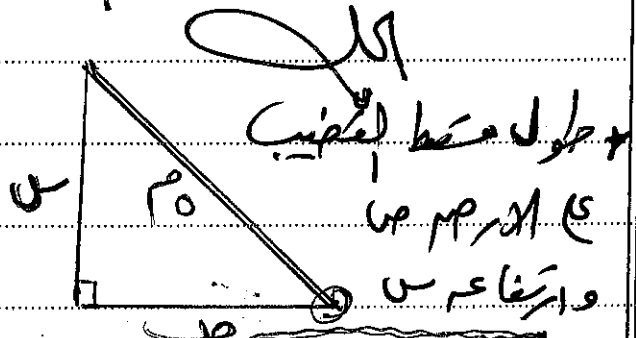 الحل
* طول مسقط القضيب
ع الارض ص
وارتفاعه س
س
٥م
ص